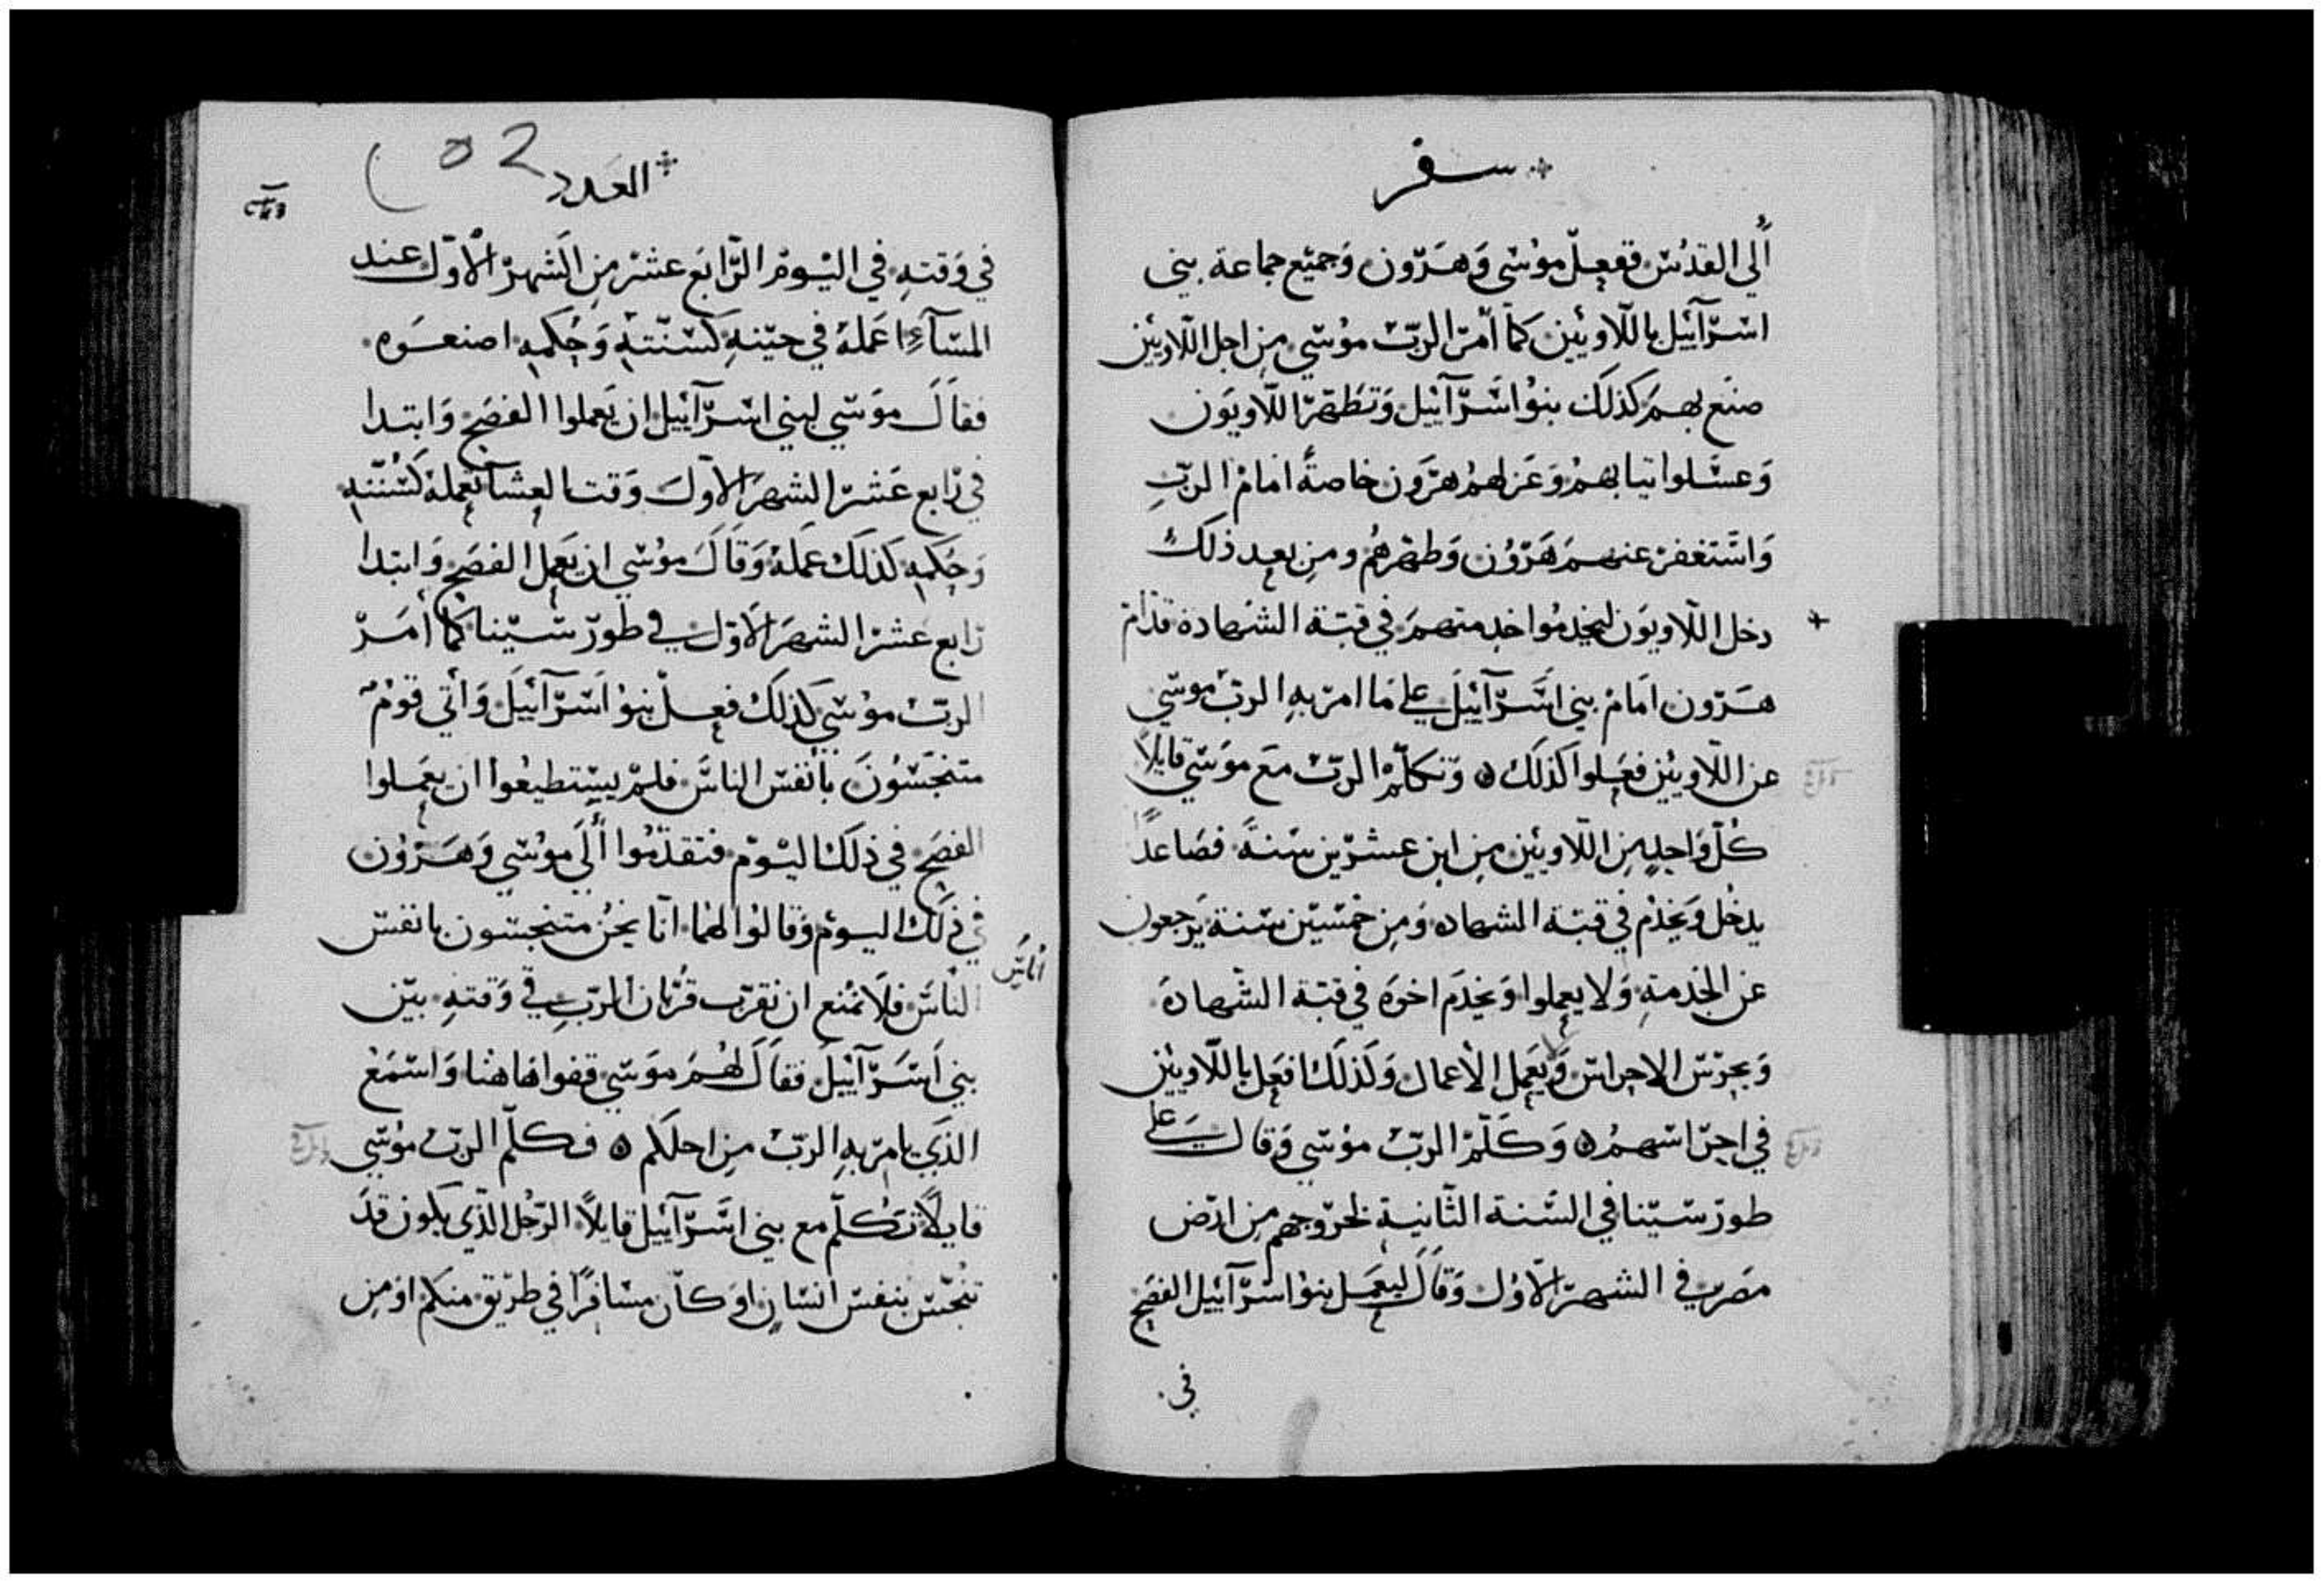 سفر
ألي القدس ففعل موسى وهرون وجميع جماعة بني
اسرآئيل باللاويين كما أمر الرب موسي من اجل اللاويين
صنع بهم كذلك بنو اسرآئيل وتطهر اللاويون
وغسلوا ثيابهم وعزلهم هرون خاصةً امام الرب
واستغفر عنهم هرون وطهرهم ومن بعد ذلك
دخل اللاويون ليخدموا خدمتهم في قبة الشهادة قدام
هرون امام بني اسرآئيل علي ما امر به الرب موسي
عن اللاويين فعلوا كذلك وتكلم الرب مع موسي قايلاً
كل واحد من اللاويين من ابن عشرين سنة فصاعداً
يدخل ويخدم في قبة الشهاده ومن خمسين سنة يرجعون
عن الخدمة ولا يعملوا ويخدم اخوه في قبة الشهادة
ويحرس الاحراس ويعمل الأعمال وكذلك افعل باللاويين
في احراسهم وكلم الرب موسي وقال علي
طور سينا في السنة الثانية لخروجهم من ارض
مصر في الشهر الاول وقال ليعمل بنو اسرآئيل الفصح
في
العدد 52
في وقته في اليوم الرابع عشر من الشهر الأول عند
المسآء اعمله في حينه كسنته وحكمه اصنعوه
فقال موسي لبني اسرآئيل ان يعملوا الفصح وابتدا
في رابع عشر الشهر الاول وقت العشا تعمله كسنته
وحكمه كذلك عمله وقال موسي ان يعمل الفصح وابتدا
رابع عشر الشهر الاول في طور سينا كما أمر
الرب موسي كذلك فعل بنو اسرآئيل وأتي قوم
متنجسون بأنفس الناس فلم يستطيعوا ان يعملوا
الفصح في ذلك اليوم فتقدموا ألي موسي وهرون
في ذلك اليوم وقالوا لهما انا نحن متنجسون بانفس
أناس
الناس فلا نمنع ان نقرب قربان الرب في وقته بين
بني اسرآئيل فقال لهم موسي قفوا هاهنا واسمع
الذي يامر به الرب من اجلكم فكلم الرب موسي
قايلاً تكلم مع بني اسرآئيل قايلاً الرجل الذي يكون قد
تنجس بنفس انسان او كان مسافراً في طريق منكم او من